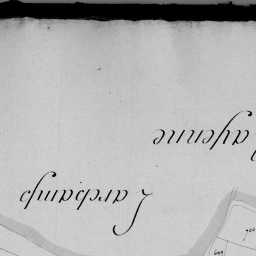 Larchamp
ayenne